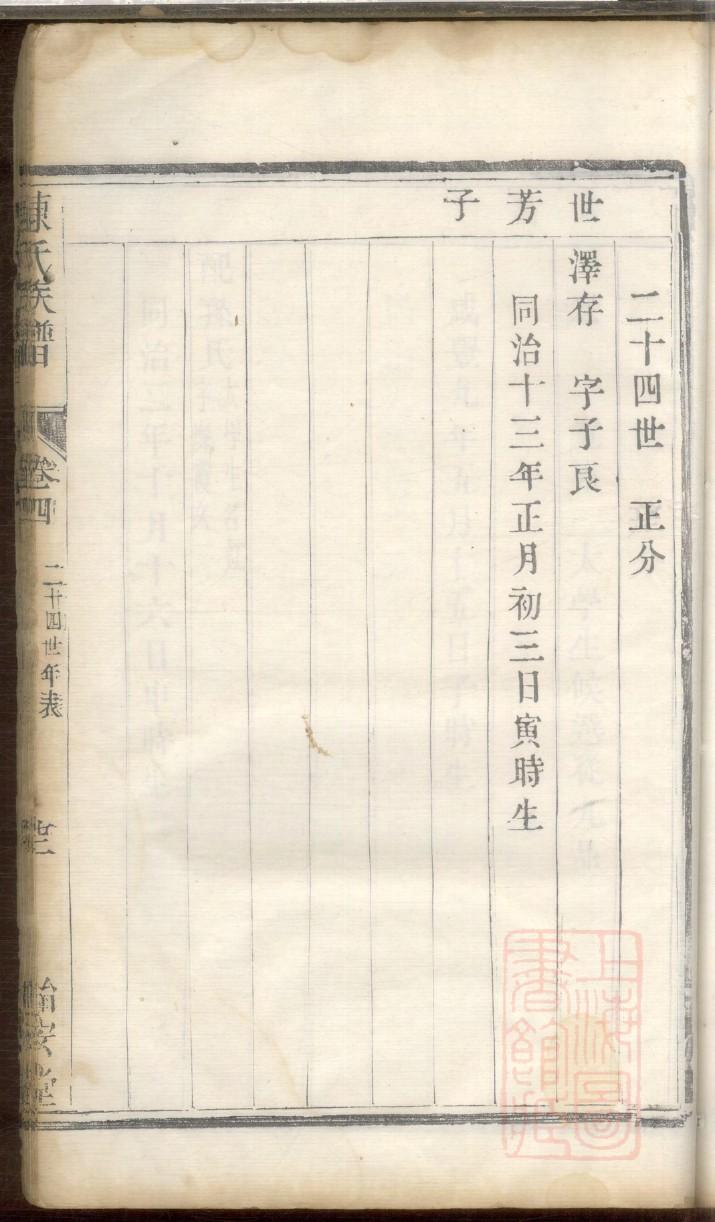 二十四世　正分
世芳子
澤存　字子良
同治十三年正月初三日寅時生
陳氏族譜
卷四
二十四世年表
上海圖書館藏